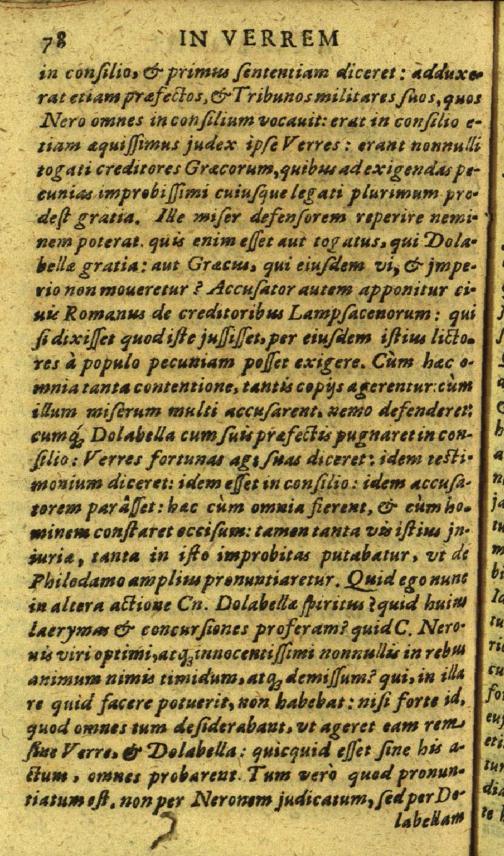 78 IN VERREM
in conſilio, & primus ſententiam diceret: adduxe-
rat etiam præfectos, & Tribunos militares ſuos, quos
Nero omnes in conſilium vocauit: erat in conſilio e-
tiam æquiſſimus judex ipſe Verres: erant nonnulli
togati creditores Græcorum, quibus ad exigendas pe-
cunias improbiſſimi cuiuſque legati plurimum pro-
deſt gratia. Ille miſer defenſorem reperire nemi-
nem poterat. quis enim eſſet aut togatus, qui Dola-
bellæ gratia: aut Græcus, qui eiuſdem vi, & jmpe-
rio non moueretur? Accuſator autem apponitur ci-
uis Romanus de creditoribus Lampſacenorum: qui
ſi dixiſſet quod iſte juſſiſſet, per eiuſdem iſtius licto-
res à populo pecuniam poſſet exigere. Cùm hæc o-
mnia tanta contentione, tantis copijs agerentur: cùm
illum miſerum multi accuſarent, nemo defenderet:
cumq́; Dolabella cum ſuis præfectis pugnaret in con-
ſilio: Verres fortunas agi ſuas diceret: idem teſti-
monium diceret: idem eſſet in conſilio: idem accuſa-
torem parâſſet: hæc cùm omnia fierent, & cùm ho-
minem conſtaret occiſum: tamen tanta vis iſtius jn-
iuriæ, tanta in iſto improbitas putabatur, vt de
Philodamo amplius pronuntiaretur. Quid ego nunc
in altera actione Cn. Dolabellæ ſpiritus? quid huius
lacrymas & concurſiones proferam? quid C. Nero-
nis viri optimi, atq; innocentiſſimi nonnullis in rebus
animum nimis timidum, atq; demiſſum? qui, in illa
re quid facere potuerit, non habebat: niſi forte id,
quod omnes tum deſiderabant, vt ageret eam rem
ſine Verre, & Dolabella: quicquid eſſet ſine his a-
ctum, omnes probarent. Tum verò quod pronun-
tiatum eſt, non per Neronem judicatum, ſed per Do-
labellam